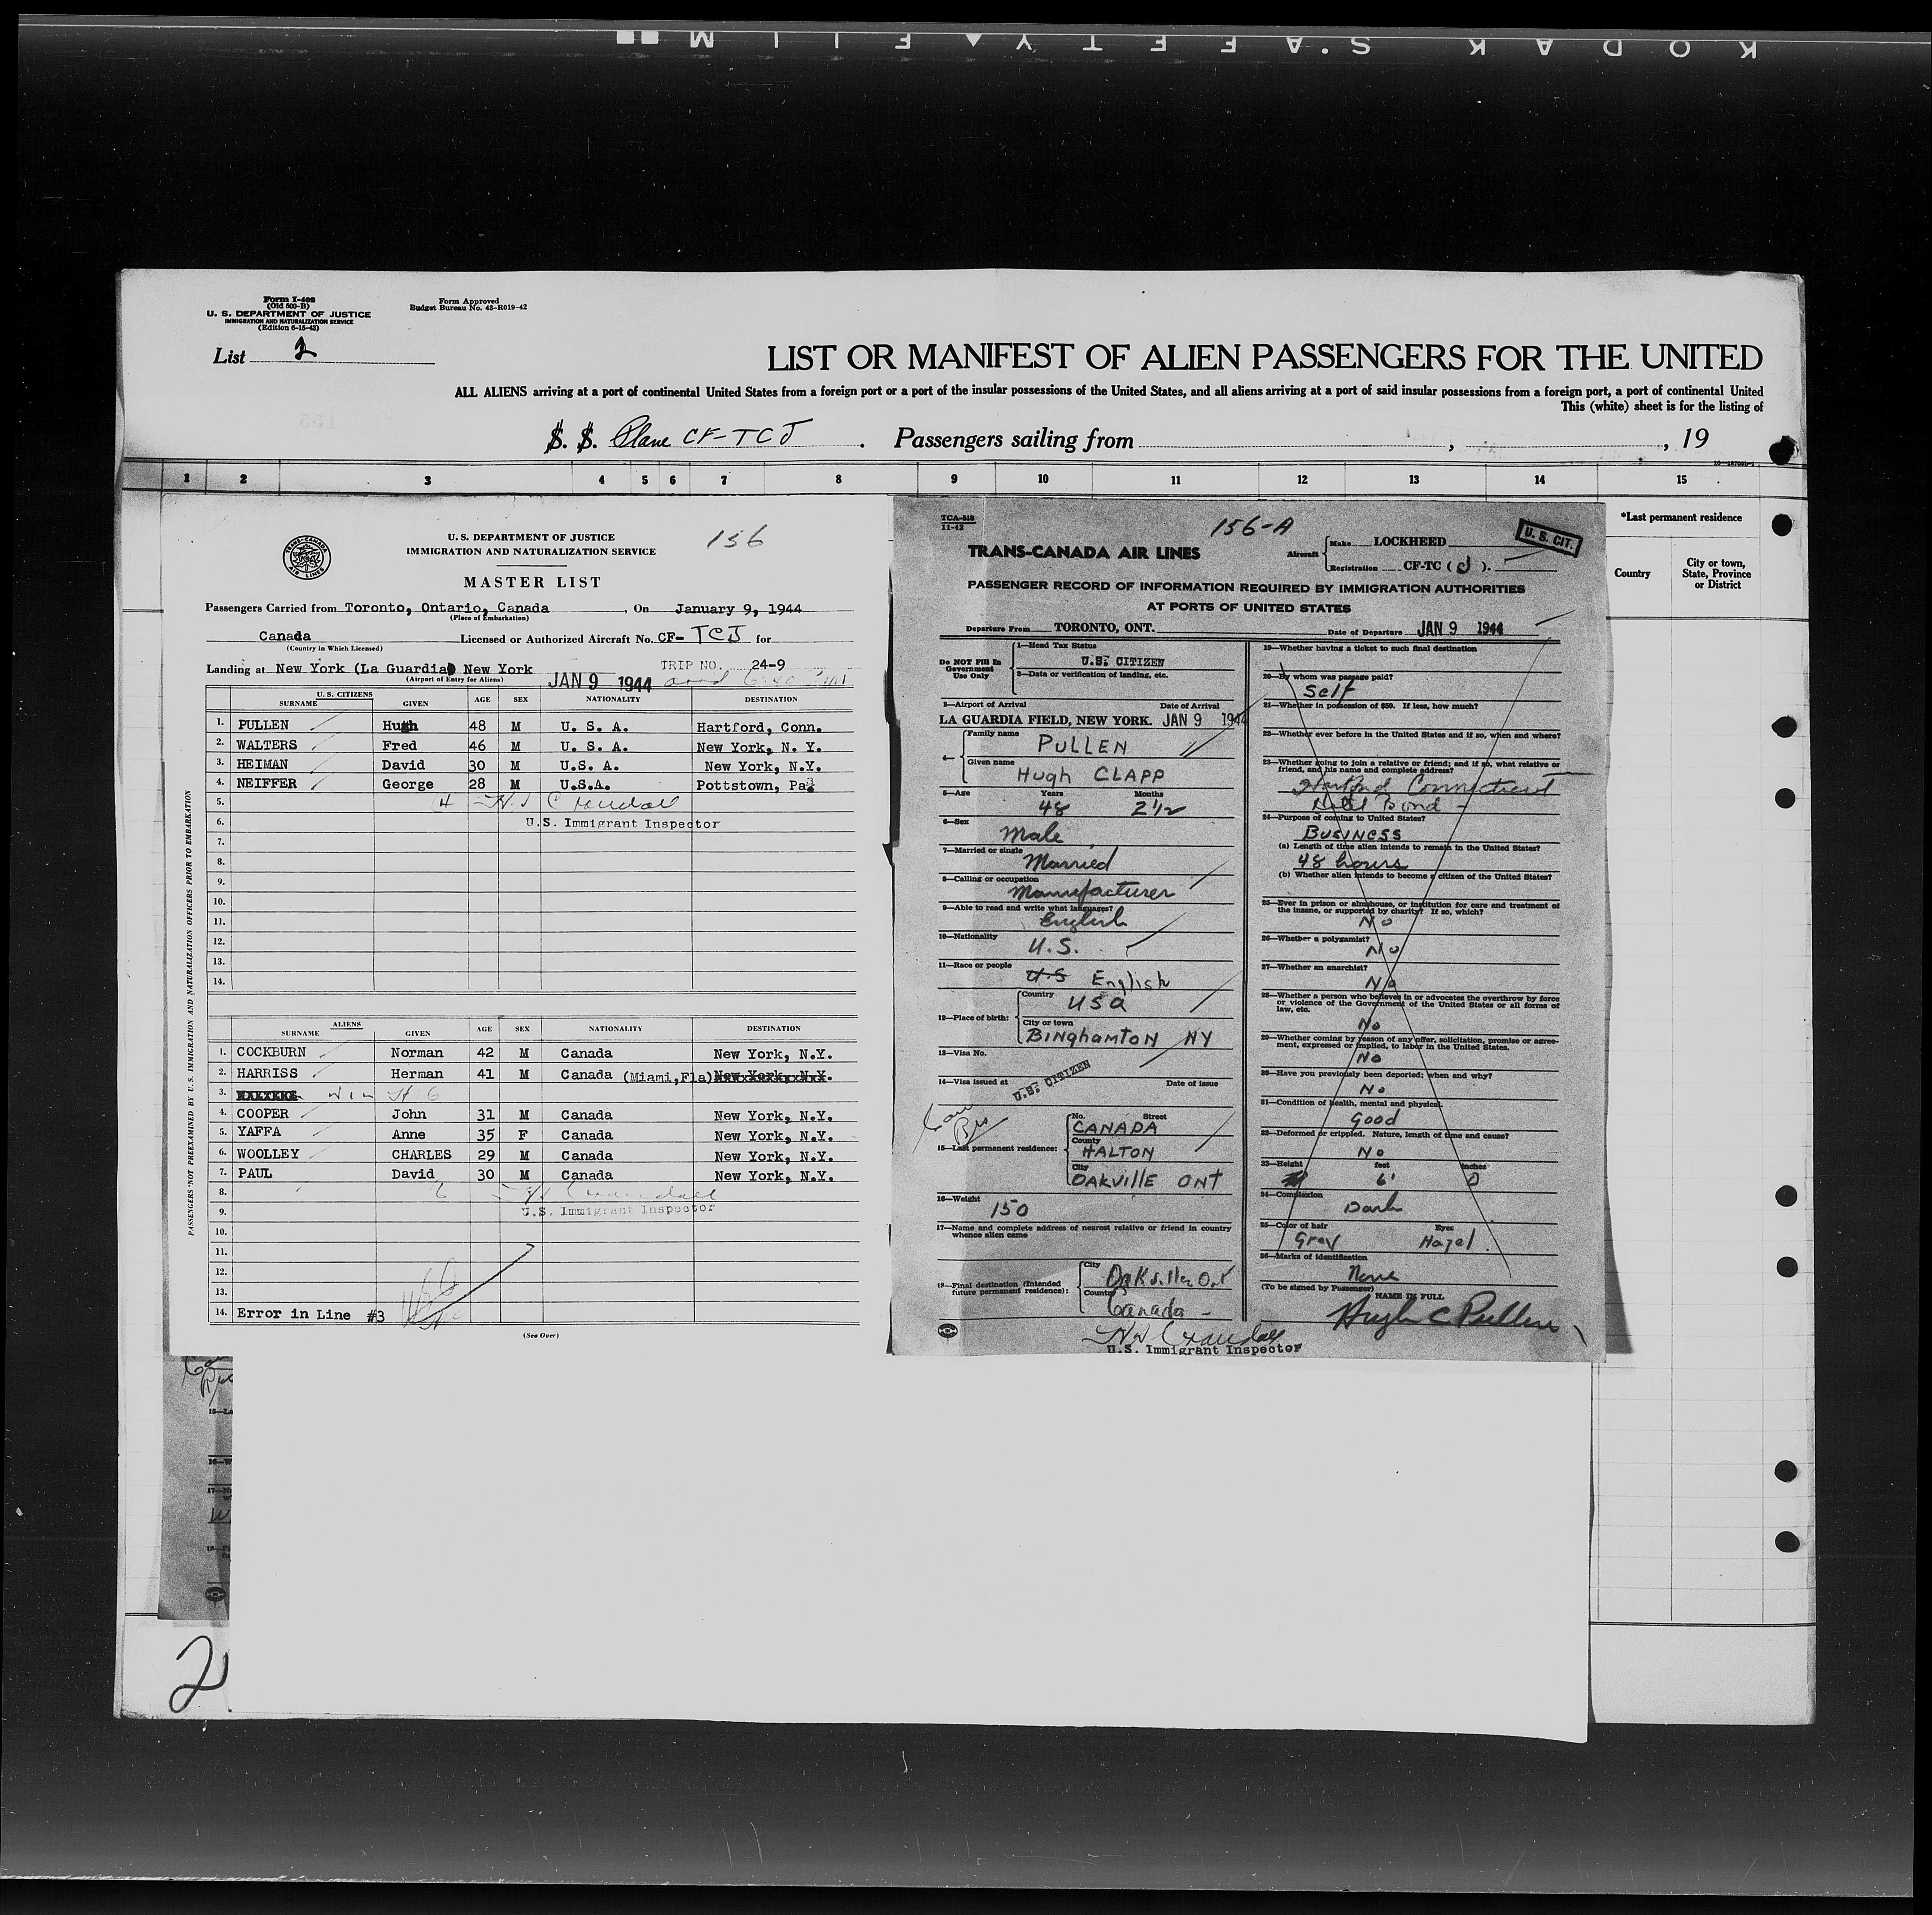 KODAK S.AFETY▲FILM
Form I-408
(Old 500-B)
U. S. DEPARTMENT OF JUSTICE
IMMIGRATION AND NATURALIZATION SERVICE
(Edition 6-15-43)
Form Approved
Budget Bureau No. 43-R019-42
List 2
LIST OR MANIFEST OF ALIEN PASSENGERS FOR THE UNITED
ALL ALIENS arriving at a port of continental United States from a foreign port or a port of the insular possessions of the United States, and all aliens arriving at a port of said insular possessions from a foreign port, a port of continental United
This (white) sheet is for the listing of
S. S. Plane CF-TCJ . Passengers sailing from , , 19
1 2 3 4 5 6 7 8 9 10 11 12 13 14 15
*Last permanent residence
Country
City or town,
State, Province
or District
TRANS-CANADA
AIR LINES
U. S. DEPARTMENT OF JUSTICE
IMMIGRATION AND NATURALIZATION SERVICE
156
MASTER LIST
Passengers Carried from Toronto, Ontario, Canada , On January 9, 1944
(Place of Embarkation)
Canada Licensed or Authorized Aircraft No. CF- TCJ for
(Country in Which Licensed)
Landing at New York (La Guardia) New York TRIP NO. 24-9
(Airport of Entry for Aliens)
JAN 9 1944
U. S. CITIZENS
SURNAME GIVEN AGE SEX NATIONALITY DESTINATION
1. PULLEN Hugh 48 M U. S. A. Hartford, Conn.
2. WALTERS Fred 46 M U. S. A. New York, N. Y.
3. HEIMAN David 30 M U.S. A. New York, N.Y.
4. NEIFFER George 28 M U.S.A. Pottstown, Pa.
5. 4 H. W Crandall
6. U.S. Immigrant Inspector
7.
8.
9.
10.
11.
12.
13.
14.
ALIENS
SURNAME GIVEN AGE SEX NATIONALITY DESTINATION
1. COCKBURN Norman 42 M Canada New York, N.Y.
2. HARRISS Herman 41 M Canada (Miami,Fla) New York, N.Y.
3.
4. COOPER John 31 M Canada New York, N.Y.
5. YAFFA Anne 35 F Canada New York, N.Y.
6. WOOLLEY CHARLES 29 M Canada New York, N.Y.
7. PAUL David 30 M Canada New York, N.Y.
8. 6 H W Crandall
9. U.S. Immigrant Inspector
10.
11.
12.
13.
14. Error in Line #3
(See Over)
PASSENGERS NOT PREEXAMINED BY U. S. IMMIGRATION AND NATURALIZATION OFFICERS PRIOR TO EMBARKATION
TCA-518
11-42
156-A
TRANS-CANADA AIR LINES
Aircraft
Make LOCKHEED
Registration CF-TC ( J ).
U. S. CIT.
PASSENGER RECORD OF INFORMATION REQUIRED BY IMMIGRATION AUTHORITIES
AT PORTS OF UNITED STATES
Departure From TORONTO, ONT. Date of Departure JAN 9 1944
Do NOT Fill In
Government
Use Only
1—Head Tax Status
U.S. CITIZEN
2—Data or verification of landing, etc.
3—Airport of Arrival Date of Arrival
LA GUARDIA FIELD, NEW YORK. JAN 9 1944
4—
Family name
PULLEN
Given name
Hugh CLAPP
5—Age Years Months
48 2½
6—Sex
Male
7—Married or single
Married
8—Calling or occupation
Manufacturer
9—Able to read and write what languages?
English
10—Nationality
U.S.
11—Race or people
U.S English
12—Place of birth:
Country
USA
City or town
BINghamTON NY
13—Visa No.
14—Visa issued at U.S. CITIZEN Date of issue
15—Last permanent residence:
No. Street
CANADA
County
HALTON
City
OAKVIllE ONT
16—Weight
150
17—Name and complete address of nearest relative or friend in country
whence alien came
18—Final destination (Intended
future permanent residence):
City
Oakville Ont
Country
Canada
H W Crandall
U.S. Immigrant Inspector
19—Whether having a ticket to such final destination
20—By whom was passage paid?
Self
21—Whether in possession of $50. If less, how much?
22—Whether ever before in the United States and if so, when and where?
23—Whether going to join a relative or friend; and if so, what relative or
friend, and his name and complete address?
Hartford Connecticut
Hotel Bond
24—Purpose of coming to United States?
BUSINESS
(a) Length of time alien intends to remain in the United States?
48 hours
(b) Whether alien intends to become a citizen of the United States?
25—Ever in prison or almshouse, or institution for care and treatment of
the insane, or supported by charity? If so, which?
No
26—Whether a polygamist?
No
27—Whether an anarchist?
No
28—Whether a person who believes in or advocates the overthrow by force
or violence of the Government of the United States or all forms of
law, etc.
No
29—Whether coming by reason of any offer, solicitation, promise or agree-
ment, expressed or implied, to labor in the United States.
No
30—Have you previously been deported; when and why?
No
31—Condition of health, mental and physical.
Good
32—Deformed or crippled. Nature, length of time and cause?
No
33—Height feet inches
6' 0
34—Complexion
Dark
35—Color of hair Eyes
Gray Hazel
36—Marks of identification
None
(To be signed by Passenger)
NAME IN FULL
Hugh C Pullen
2